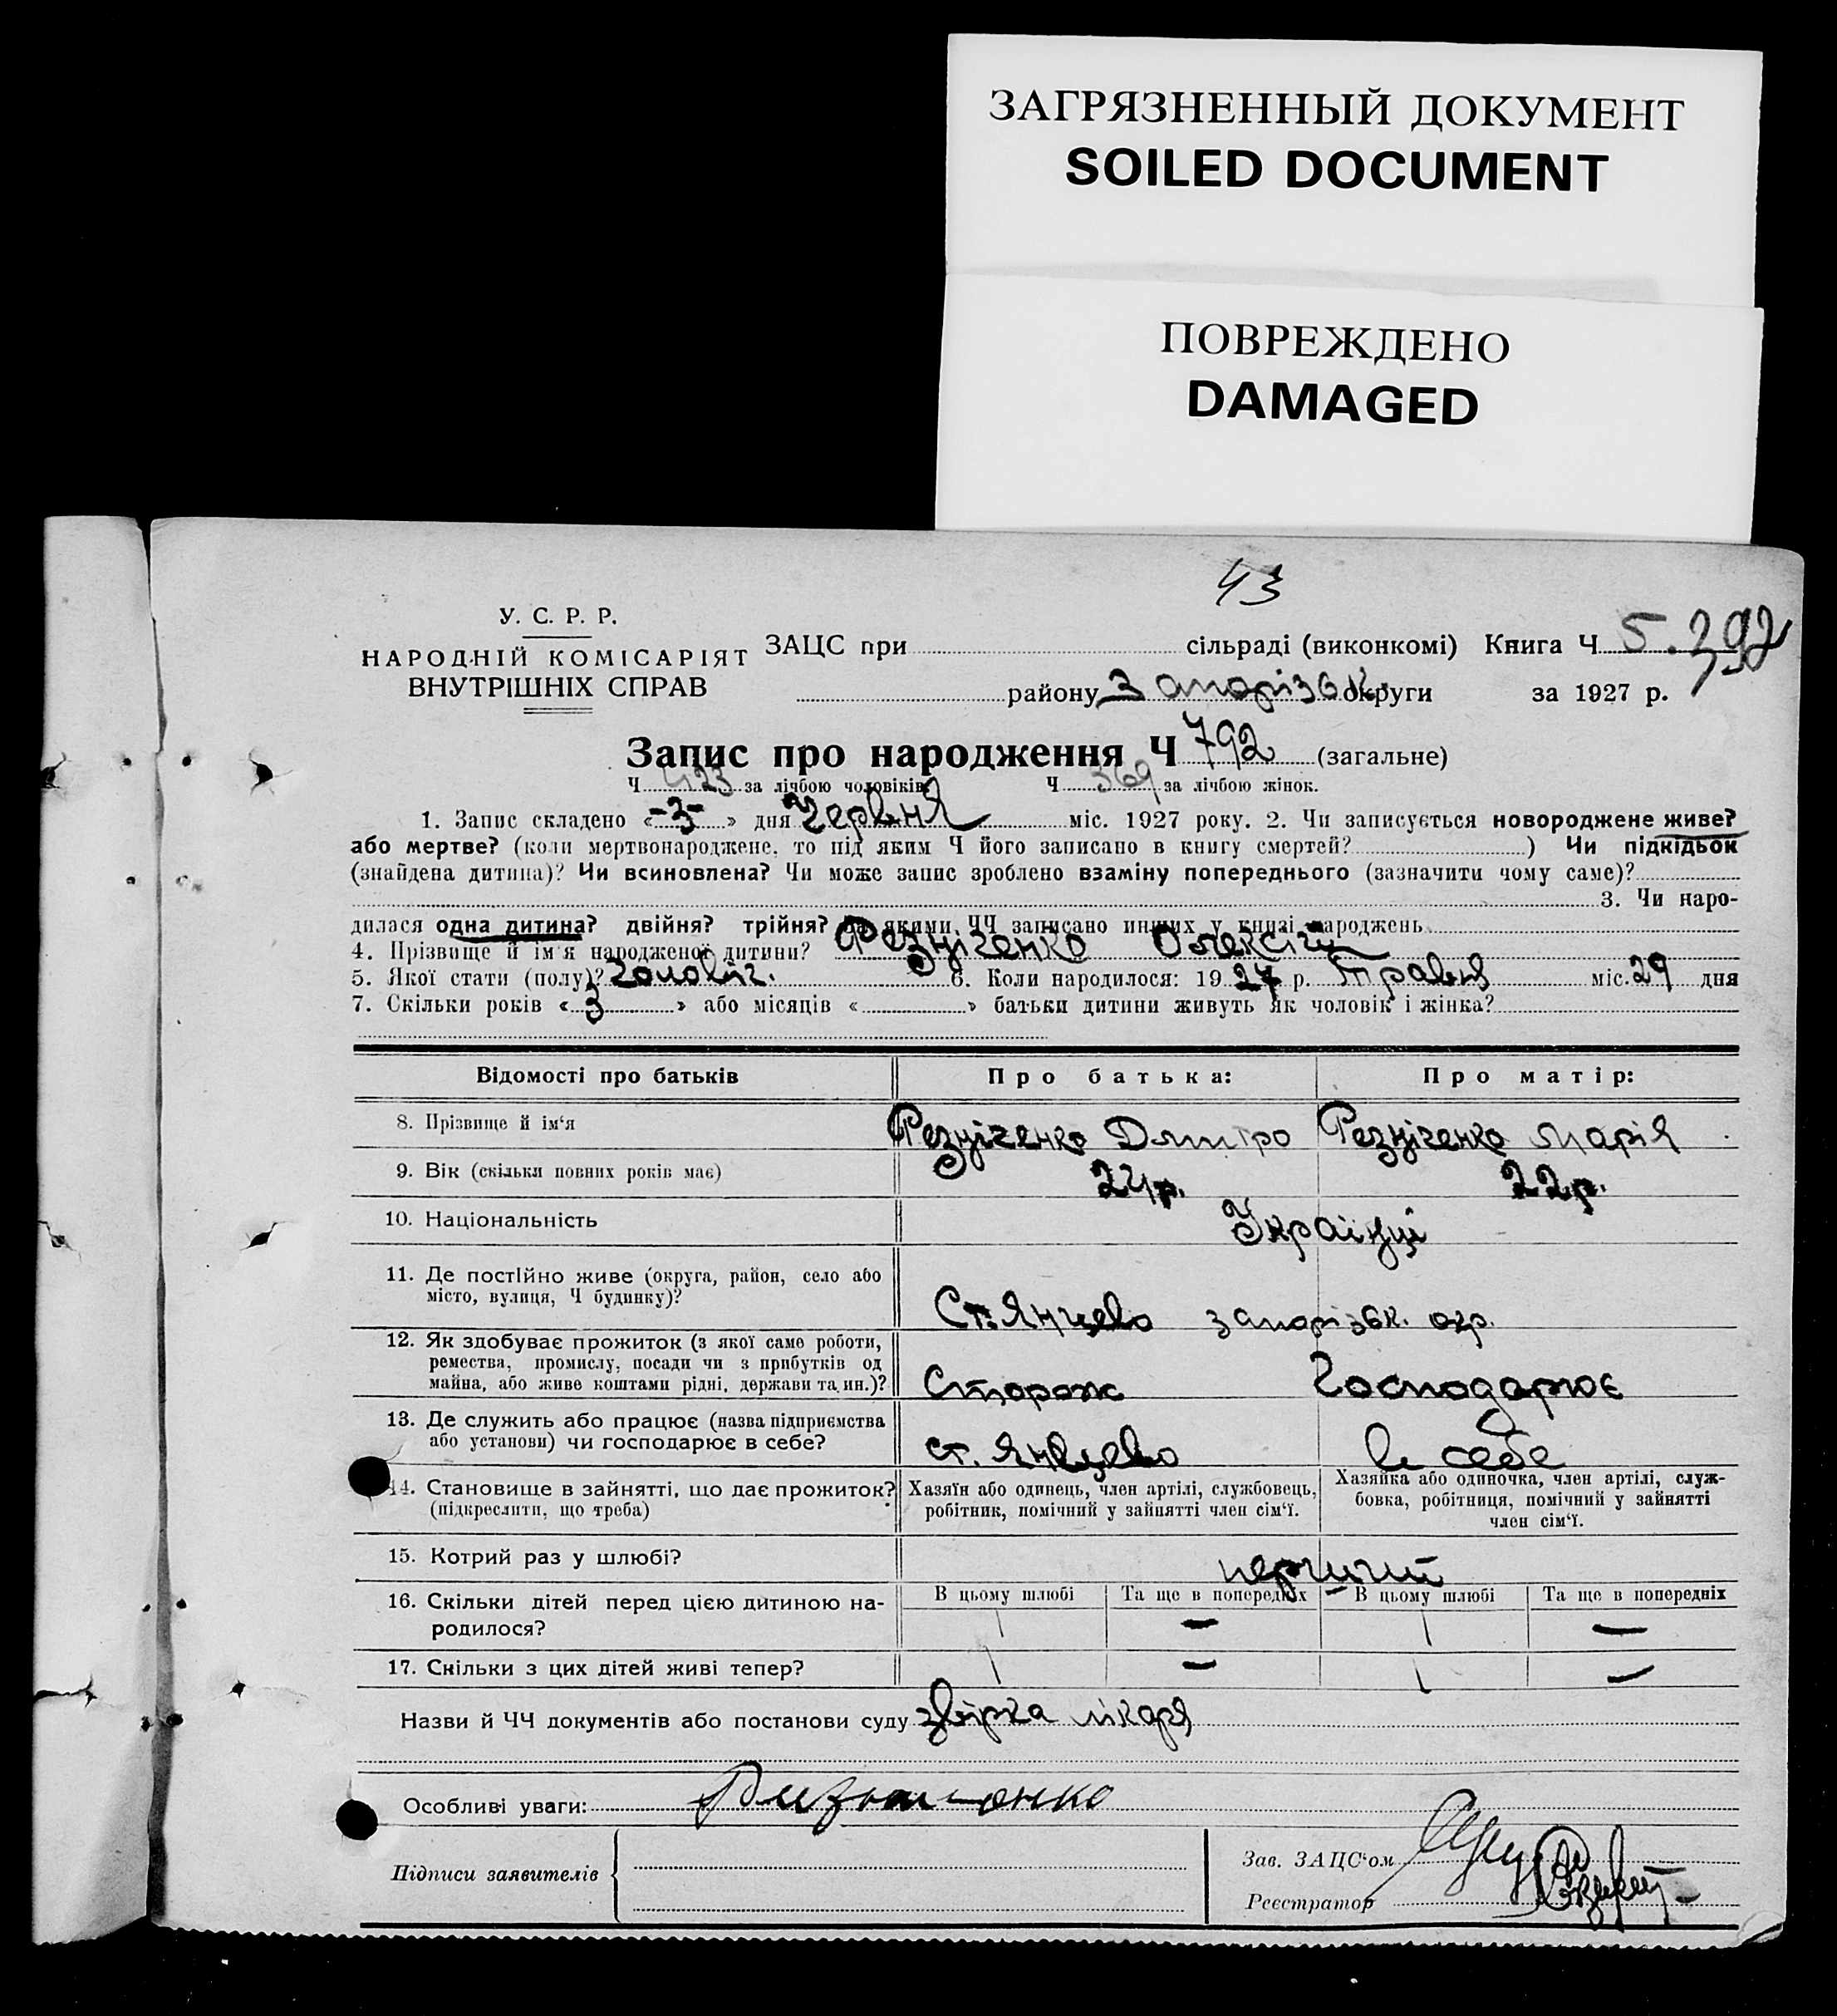 ЗАГРЯЗНЕННЫЙ ДОКУМЕНТ
SOILED DOCUMENT
ПОВРЕЖДЕНО
DAMAGED
43
У. С. Р. Р.
НАРОДНІЙ КОМІСАРІЯТ
ВНУТРІШНІХ СПРАВ
ЗАЦС при сільраді (виконкомі) Книга Ч 5.
району Запорізьк. округи за 1927 р.
Запис про народження Ч 792 (загальне)
Ч 423 за лічбою чоловіків Ч 369 за лічбою жінок.
1. Запис складено «-3-» дня Червня міс. 1927 року. 2. Чи записується новороджене живе?
або мертве? (коли мертвонароджене, то під яким Ч його записано в книгу смертей? ) Чи підкідьок
(знайдена дитина)? Чи всиновлена? Чи може запис зроблено взаміну попереднього (зазначити чому саме)?
3. Чи наро-
дилася одна дитина? двійня? трійня? За якими ЧЧ записано инших у книзі народжень
4. Прізвище й ім'я народженої дитини? Резніченко Олексій
5. Якої стати (полу)? чоловіч. 6. Коли народилося: 1927 р. Травня міс. 29 дня
7. Скільки років «3» або місяців « » батьки дитини живуть як чоловік і жінка?
Відомості про батьків Про батька: Про матір:
8. Прізвище й ім'я Резніченко Дмитро Резніченко Марія
9. Вік (скільки повних років має) 24р. 22р.
10. Національність Українці
11. Де постійно живе (округа, район, село або
місто, вулиця, Ч будинку)? Ст. Янцево запорізьк. окр.
12. Як здобуває прожиток (з якої саме роботи,
ремества, промислу, посади чи з прибутків од
майна, або живе коштами рідні, держави та ин.)? Сторож Господарює
13. Де служить або працює (назва підприємства
або установи) чи господарює в себе? ст. Янцево в себе
14. Становище в зайнятті, що дає прожиток?
(підкреслити, що треба)
Хазяїн або одинець, член артілі, службовець,
робітник, помічний у зайнятті член сім'ї.
Хазяйка або одиночка, член артілі, служ-
бовка, робітниця, помічний у зайнятті
член сім'ї.
15. Котрий раз у шлюбі? перший
16. Скільки дітей перед цією дитиною на-
родилося?
В цьому шлюбі Та ще в попередніх В цьому шлюбі Та ще в попередніх
1 — 1 —
17. Скільки з цих дітей живі тепер? 1 — 1 —
Назви й ЧЧ документів або постанови суду звірка лікаря
Особливі уваги:
Підписи заявителів
Зав. ЗАЦС'ом
Реєстратор